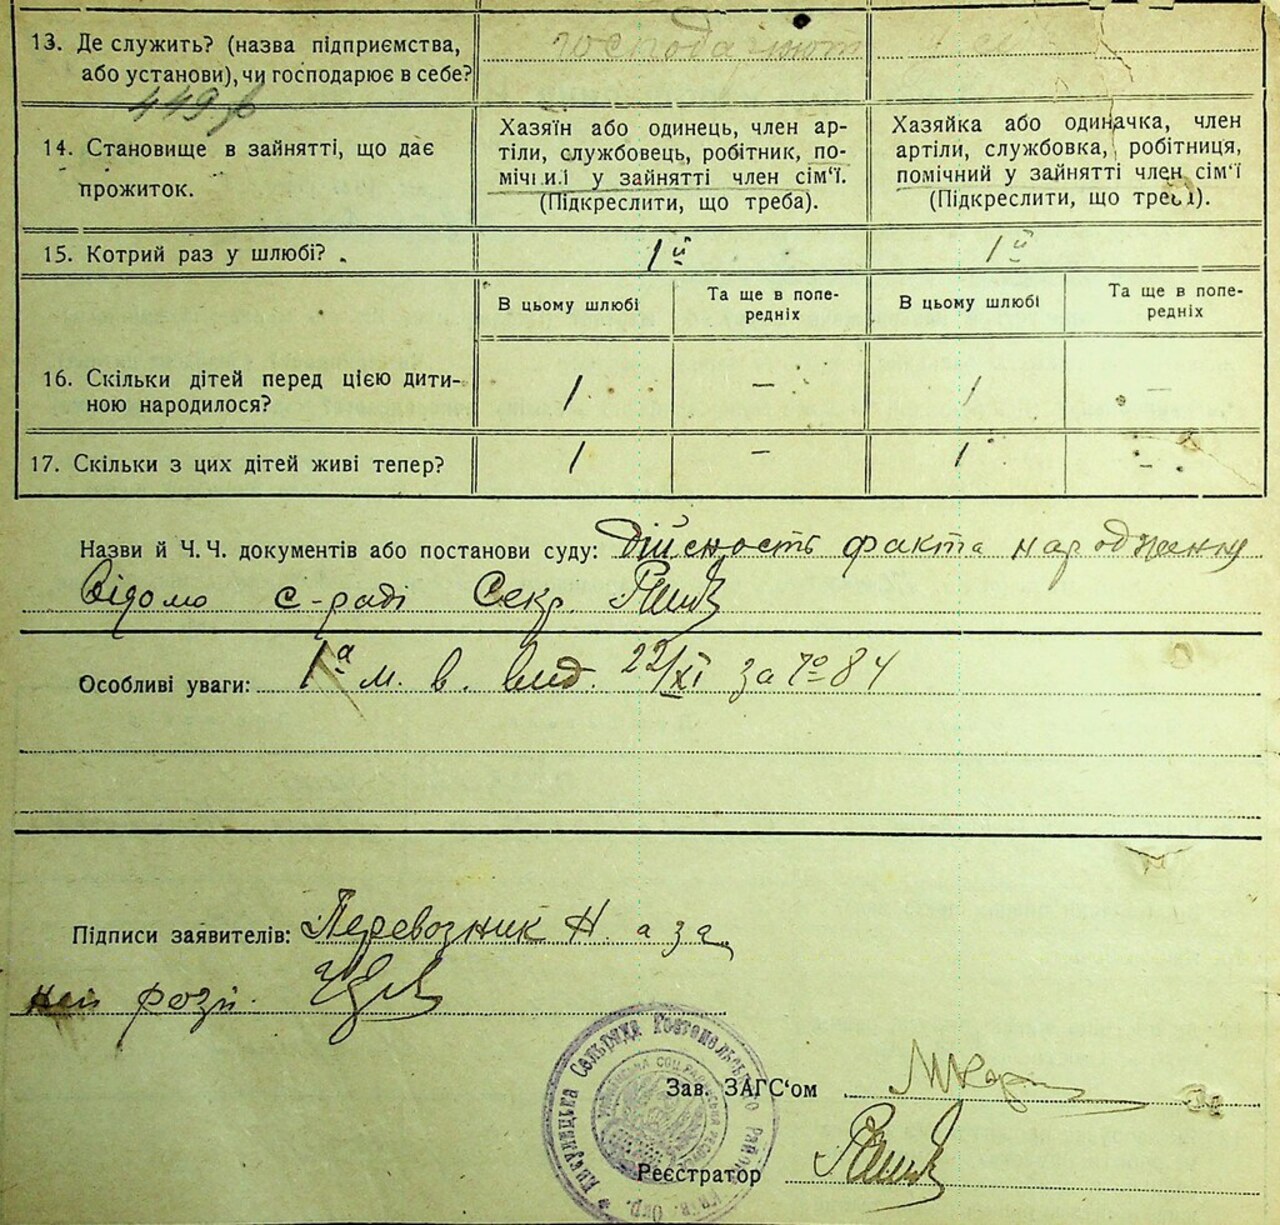 13. Де служить? (назва підприємства,
або установи), чи господарює в себе?
господарюют
449
14. Становище в зайнятті, що дає
прожиток.
Хазяїн або одинець, член ар-
тіли, службовець, робітник, по-
мічний у зайнятті член сім'ї.
(Підкреслити, що треба).
Хазяйка або одиначка, член
артіли, службовка, робітниця,
помічний у зайнятті член сім'ї
(Підкреслити, що треба).
15. Котрий раз у шлюбі?
1й 1й
В цьому шлюбі
Та ще в попе-
редніх
В цьому шлюбі
Та ще в попе-
редніх
16. Скільки дітей перед цією дити-
ною народилося?
1 — 1 —
17. Скільки з цих дітей живі тепер?
1 — 1 —
Назви й Ч. Ч. документів або постанови суду: Дійсность факта народження
Відомо с-раді Секр.
Особливі уваги: 1а м. в. вид. 22/XI за № 84
Підписи заявителів: Перевозник Н. а за
неп розп.
Сельрада Костопольського Району
Зав. ЗАГС'ом
Реєстратор